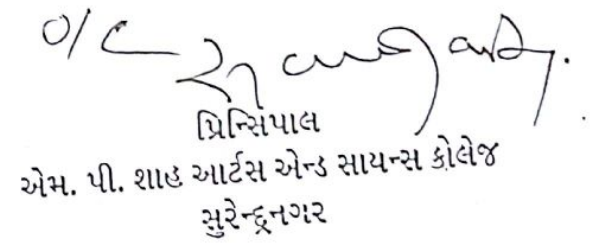 O/C
પ્રિન્સિપાલ
એમ. પી. શાહ આર્ટસ એન્ડ સાયન્સ કોલેજ
સુરેન્દ્રનગર